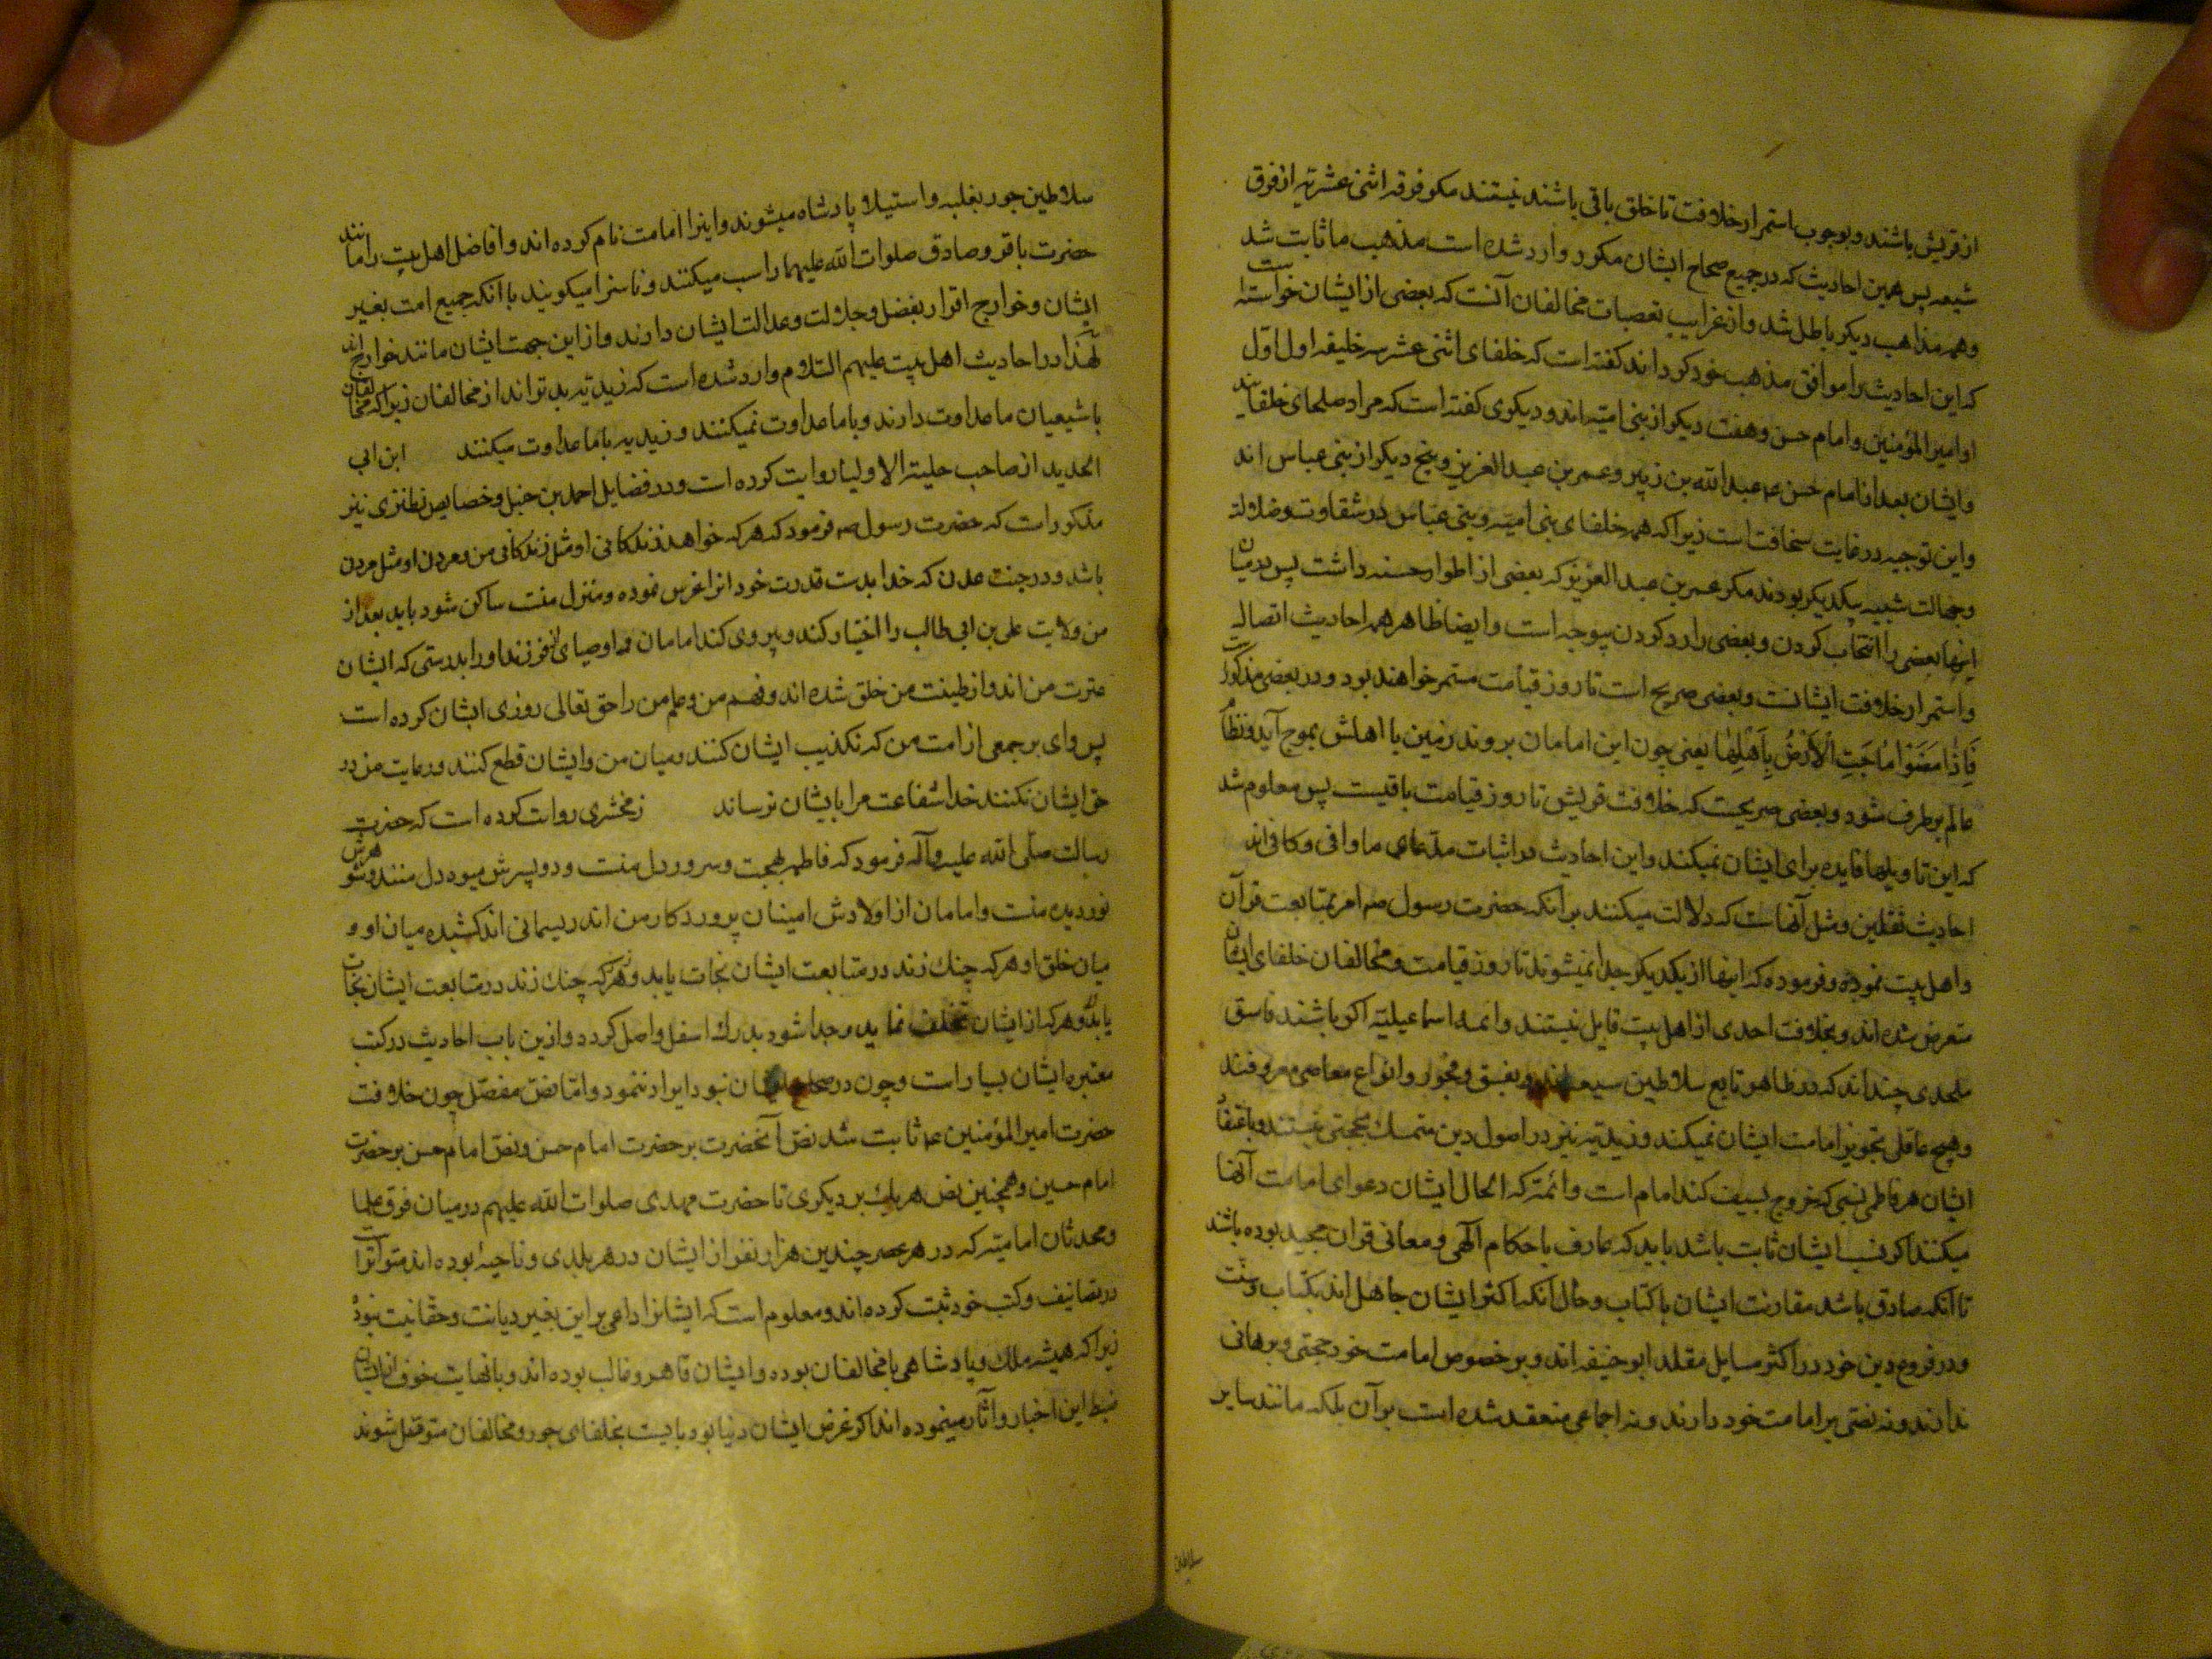 از قریش باشند و بوجوب استمرار خلافت تا خلق باقی باشند نیستند مکر فرقه اثنی عشریه از فرق
شیعه پس همین احادیث که در جمیع صحاح ایشان مکرر وارد شده است مذهب ما ثابت شد
و همه مذاهب دیکر باطل شد و از غرایب تعصبات مخالفان آنست که بعضی از ایشان خواسته
که این احادیث را موافق مذهب خود کرداند کفته است که خلفای اثنی عشر سه خلیفه اول اول
او امیر المؤمنین و امام حسن و هفت دیکر از بنی امیّه اند و دیکری کفته است که مراد صلحای خلفایند
و ایشان بعد از امام حسن عم عبد الله بن زبیر و عمر بن عبد العزیز و پنج دیکر از بنی عباس اند
و این توجیه در غایت سخافت است زیرا که همه خلفای بنی امیه و بنی عباس در شقاوت و ضلالت
و جهالت شبیه بیکدیکر بودند مکر عمر بن عبد العزیز که بعضی از اطوار حسنه داشت پس در میان
اینها بعضی را انتخاب کردن و بعضی را رد کردن بیوجه است و ایضا ظاهر همه احادیث اتصال
و استمرار خلافت ایشانست و بعضی صریح است تا روز قیامت مستمر خواهند بود و در بعضی مذکور است
فَاِذٰا مَضَوْا مٰاجَتِ الْاَرْضُ بِاَهْلِهٰا یعنی چون این امامان بروند زمین با اهلش بموج آید و نظام
عالم بر طرف شود و بعضی صریحست که خلافت قریش تا روز قیامت باقیست پس معلوم شد
که این تاویلها فایده برای ایشان نمیکند و این احادیث در اثبات مدعای ما وافی و کافی اند
احادیث ثقلین و مثل آنهاست که دلالت میکنند بر آنکه حضرت رسول صم امر بمتابعت قرآن
و اهل بیت نموده و فرموده که اینها از یکدیکر جدا نمیشوند تا روز قیامت و مخالفان خلفای ایشان
متعرض شده اند و بخلافت احدی از اهل بیت قایل نیستند و ائمه اسماعیلیّه اکر باشند فاسق
ملحدی چند اند که در ظاهر تابع سلاطین سیعه اند و بفسق و فجور و انواع معاصی معروفند
و هیچ عاقل تجویز امامت ایشان نمیکند و زیدیّه نیز در اصول دین متمسک بحجتی نیستند و باعتقاد
ایشان هر فاطمی نسبی که خروج بسیف کند امام است و ائمه که الحال ایشان دعوای امامت آنها
میکنند اکر نسب ایشان ثابت باشد باید که عارف باحکام الهی و معانی قران مجید بوده باشند
تا آنکه صادق باشد مقارنت ایشان با کتاب و حال آنکه اکثر ایشان جاهل اند بکتاب و سنّت
و در فروع دین خود در اکثر مسایل مقلد ابو حنیفه اند و بر خصوص امامت خود حجتی و برهانی
ندارند و نه نصّی بر امامت خود دارند و نه اجماعی منعقد شده است بر آن بلکه مانند سایر
سلاطین
سلاطین جور بغلبه و استیلا پادشاه میشوند و اینرا امامت نام کرده اند و افاضل اهل بیت را مانند
حضرت باقر و صادق صلوات الله علیهما را سب میکنند و ناسزا میکویند با آنکه جمیع امت بغیر
ایشان و خوارج اقرار بفضل و جلالت و عدالت ایشان دارند و از این جهت ایشان مانند خوارج اند
لهذا در احادیث اهل بیت علیهم السّلام وارد شده است که زیدیّه بدتر اند از مخالفان زیرا که مخالفان
با شیعیان ما عداوت دارند و با ما عداوت نمیکنند و زیدیه با ما عداوت میکنند ابن ابی
الحدید از صاحب حلیة الاولیا روایت کرده است و در فضایل احمد بن حنبل و خصایص نطنزی نیز
مذکور است که حضرت رسول صم فرمود که هر که خواهد زندکانی او مثل زندکانی من و مردن او مثل مردن
باشد و در جنت عدن که خدا بدست قدرت خود انرا غرس نموده و منزل منست ساکن شود باید بعد از
من ولایت علی بن ابی طالب را اختیار کند و پیروی کند امامان و اوصیای از فرزند او را بدرستی که ایشان
عترت من اند و از طینت من خلق شده اند و فهم من و علم من را حق تعالی روزی ایشان کرده است
پس وای بر جمعی از امت من که تکذیب ایشان کنند و میان من و ایشان قطع کنند و رعایت من در
حق ایشان نکنند خدا شفاعت مرا بایشان نرساند زمخشری روایت کرده است که حضرت
رسالت صلّی الله علیه و آله فرمود که فاطمه بهجت و سرور دل منست و دو پسرش میوه دل منند و شوهرش
نور دیده منست و امامان از اولادش امینان پروردکار من اند ریسمانی اند کشیده میان او و
میان خلق او هر که چنک زند در متابعت ایشان نجات یابد و هر که چنک زند در متابعت ایشان نجات
یابد و هر که از ایشان تخلف نماید و جدا شود بدرک اسفل واصل کردد و ازین باب احادیث در کتب
معتبره ایشان بسیار است و چون در صحاح ایشان نبود ایراد ننمود و امّا نص مفصّل چون خلافت
حضرت امیر المؤمنین عم ثابت شد نص آنحضرت بر حضرت امام حسن و نص امام حسن بر حضرت
امام حسین و همچنین نص هر یک بر دیکری تا حضرت مهدی صلوات الله علیهم در میان فرق علما
و محدثان امامیّه که در هر عصر چندین هزار نفر از ایشان در هر بلدی و ناحیه بوده اند متواتر است
در تصانیف و کتب خود ثبت کرده اند و معلوم است که ایشانرا داعی بر این بغیر دیانت و حقّانیت نبود
زیرا که همیشه ملک و پادشاهی با مخالفان بوده و ایشان قاهر و غالب بوده اند و با نهایت خوف از ایشان
ضبط این اخبار و آثار مینموده اند اکر غرض ایشان دنیا بود بایست بخلفای جور و مخالفان متوسّل شوند